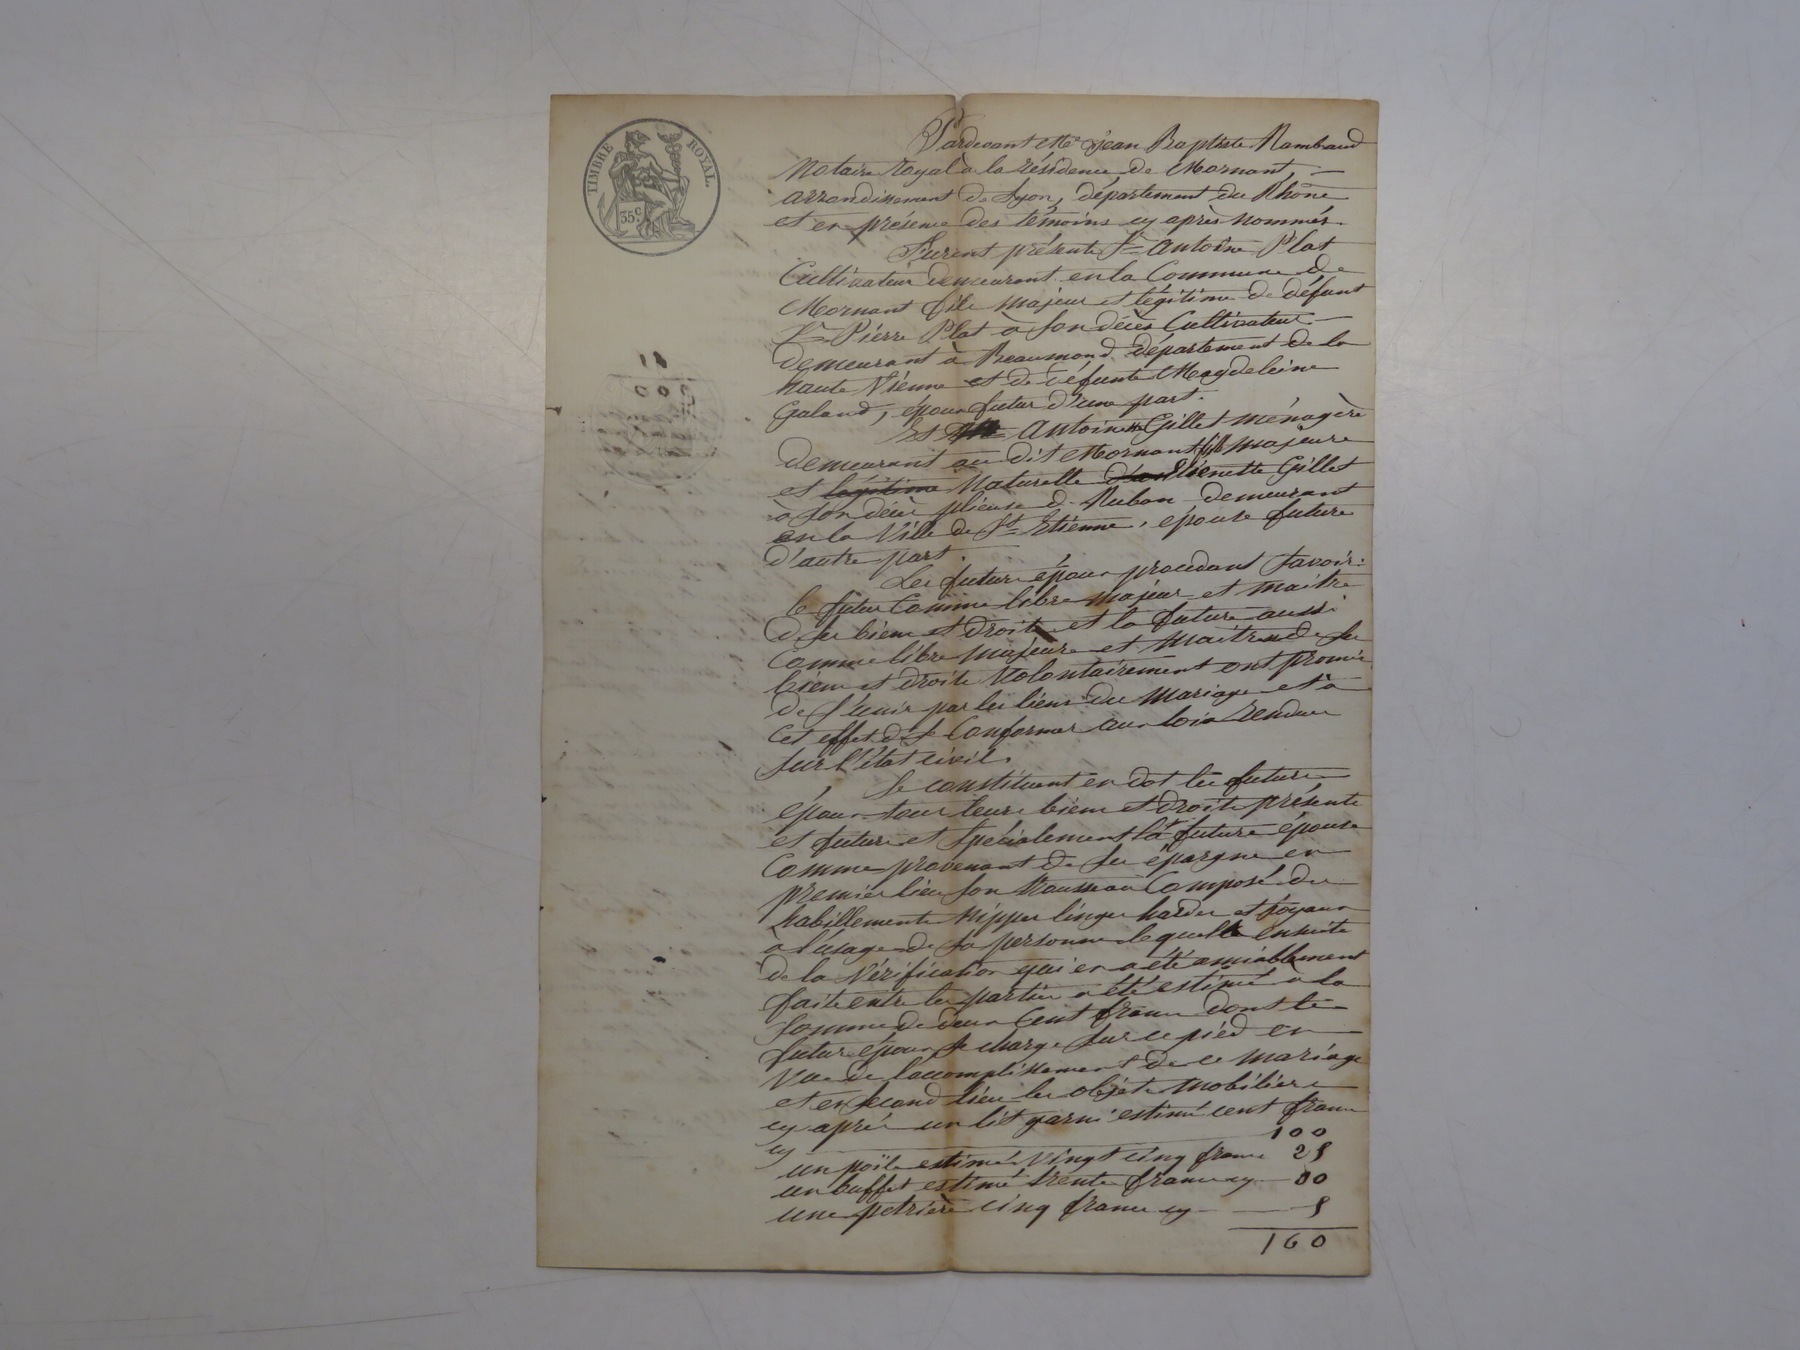 TIMBRE ROYAL.
35 c.
Pardevant Me Jean Baptiste Rambaud
Notaire royal à la résidence de Mornant,
arrondissement de Lyon, département du Rhône
et en présence des témoins cy après nommés.
Furent présents Sr Antoine Plat
Cultivateur demeurant en la Commune de
Mornant fils majeur et légitime de défunt
Sr Pierre Plat à son décès Cultivateur
demeurant à Beaumond département de la
haute Vienne et de défunte Magdeleine
Galand, époux futur d'une part.
Et Antoinette Gillet ménagère
demeurant au dit Mornant fille majeure
et légitime Naturelle d'Etiennette Gillet
à son décès plieuse de Ruban demeurant
en la Ville de St Etienne, épouse future
d'autre part.
Les futurs époux procédant savoir:
le futur Comme libre majeur et maitre
de ses biens et droits et la future aussi
Comme libre majeure et maitresse de ses
biens et droits Volontairement ont promis
de s'unir par les liens du mariage et à
cet effet de se Conformer aux lois rendues
sur l'état civil.
Se constituent en dot les futurs
époux tous leurs biens et droits présents
et futurs et Spécialement la future épouse
Comme provenant de ses épargnes en
premier lieu son trousseau Composé de
habillements nippes linges hardes et joyaux
à l'usage de sa personne lequel ensuite
de la Vérification qui en a été amiablement
faite entre les parties a été estimé à la
somme de deux Cent francs dont le
futur époux se charge sur ce pied en
Vue de l'accomplissement de ce mariage
et en second lieu les objets mobiliers
cy après un lit garni estimé cent francs
cy 100
un poële estimé Vingt cinq francs 25
un buffet estimé trente francs cy 30
une petrière cinq francs cy 5
160